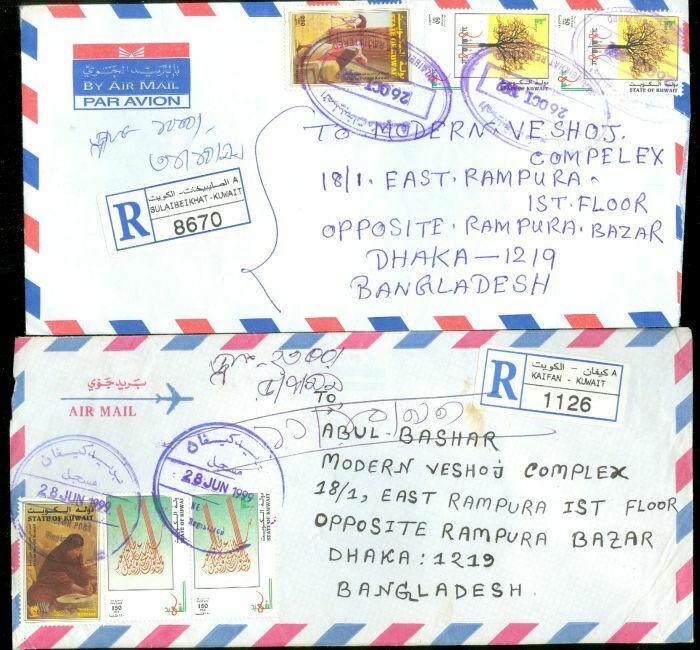 بالبريد الجوي
BY AIR MAIL
PAR AVION
STATE OF KUWAIT
STATE OF KUWAIT
STATE OF KUWAIT
26 OCT
26 OCT
TO MODERN. VESHOJ.
COMPELEX
18/1. EAST. RAMPURA.
IST. FLOOR
OPPOSITE. RAMPURA. BAZAR
DHAKA-1219
BANGLADESH
R
الصليبيخات - الكويت A
SULAIBEIKHAT - KUWAIT
8670
بريد جوي
AIR MAIL
R
كيفان - الكويت A
KAIFAN - KUWAIT
1126
TO,
ABUL BASHAR
MODERN VESHOJ COMPLEX
18/1, EAST RAMPURA IST FLOOR
OPPOSITE RAMPURA BAZAR
DHAKA: 1219
BANGLADESH.
بريد كيفان
مسجل
28 JUN 1999
بريد كيفان
مسجل
28 JUN 1999
STATE OF KUWAIT
دولة الكويت
STATE OF KUWAIT
150
دولة الكويت
STATE OF KUWAIT
150